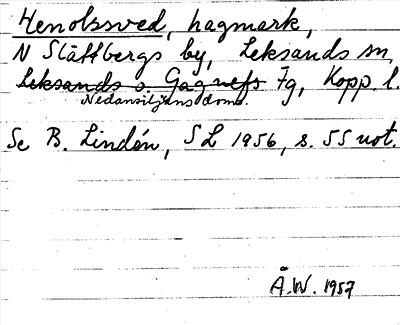 Henolssved, hagmark,
N Slättbergs by, Leksands sn,
Leksands o. Gagnefs Fg, Kopp. l.
Nedansiljans doms.
Se B. Lindén, SL 1956, s. 55 not.
Å.W. 1957